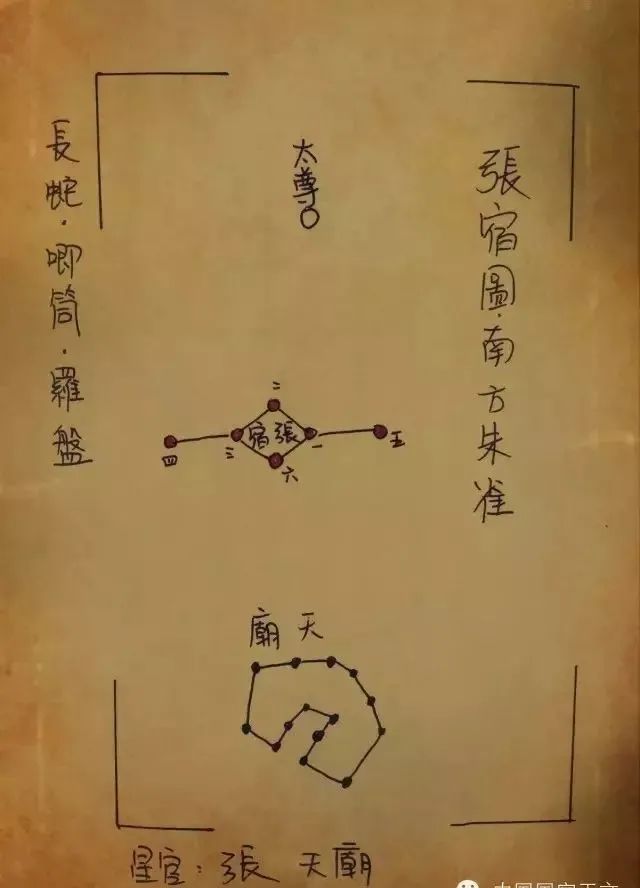 張宿圖·南方朱雀
太尊
長蛇·唧筒·羅盤
二
張宿
一
三
五
四
六
天廟
星官：張 天廟